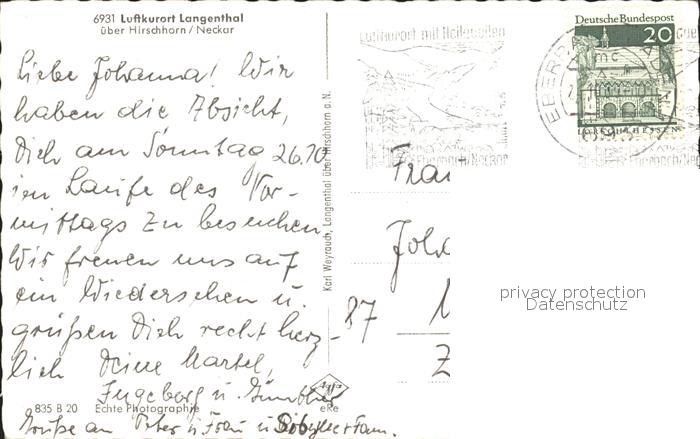 6931 Luftkurort Langenthal
über Hirschhorn / Neckar
Liebe Johanna! Wir
haben die Absicht,
Dich am Sonntag 26.10.
im Laufe des Vor-
mittags zu besuchen.
Wir freuen uns auf
ein Wiedersehen u.
grüßen Dich recht herz-
lich Deine
Ingeborg u. Günther
835 B 20 Echte Photographie
Grüße an Peter u Frau u
Karl Weyrauch, Langenthal über Hirschhorn a. N.
Agfa
eRe
Luftkurort mit Heilquellen
Eberbach/Neckar
Deutsche Bundespost
20
LORSCH HESSEN
EBERBA
Frau
Joha
87
privacy protection
Datenschutz